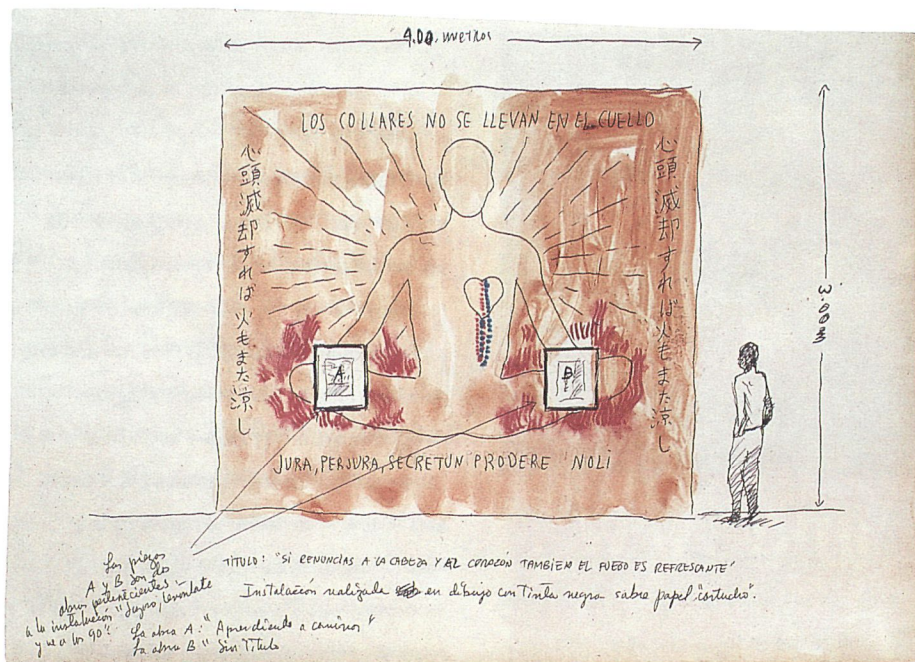 4.00 metros
LOS COLLARES NO SE LLEVAN EN EL CUELLO
心頭滅却すれば火もまた涼し
心頭滅却すれば火もまた涼し
3.00
A
B
JURA, PERJURA, SECRETUN PRODERE NOLI
TITULO: "SI RENUNCIAS A LA CABEZA Y AL CORAZÓN TAMBIEN EL FUEGO ES REFRESCANTE"
Instalación realizada en dibujo con Tinta negra sobre papel "cartucho".
Las piezas
A y B son dos
obras pertenecientes
a la instalación
y ve a los 90"
La obra A: "Aprendiendo a caminar"
La obra B "Sin Titulo